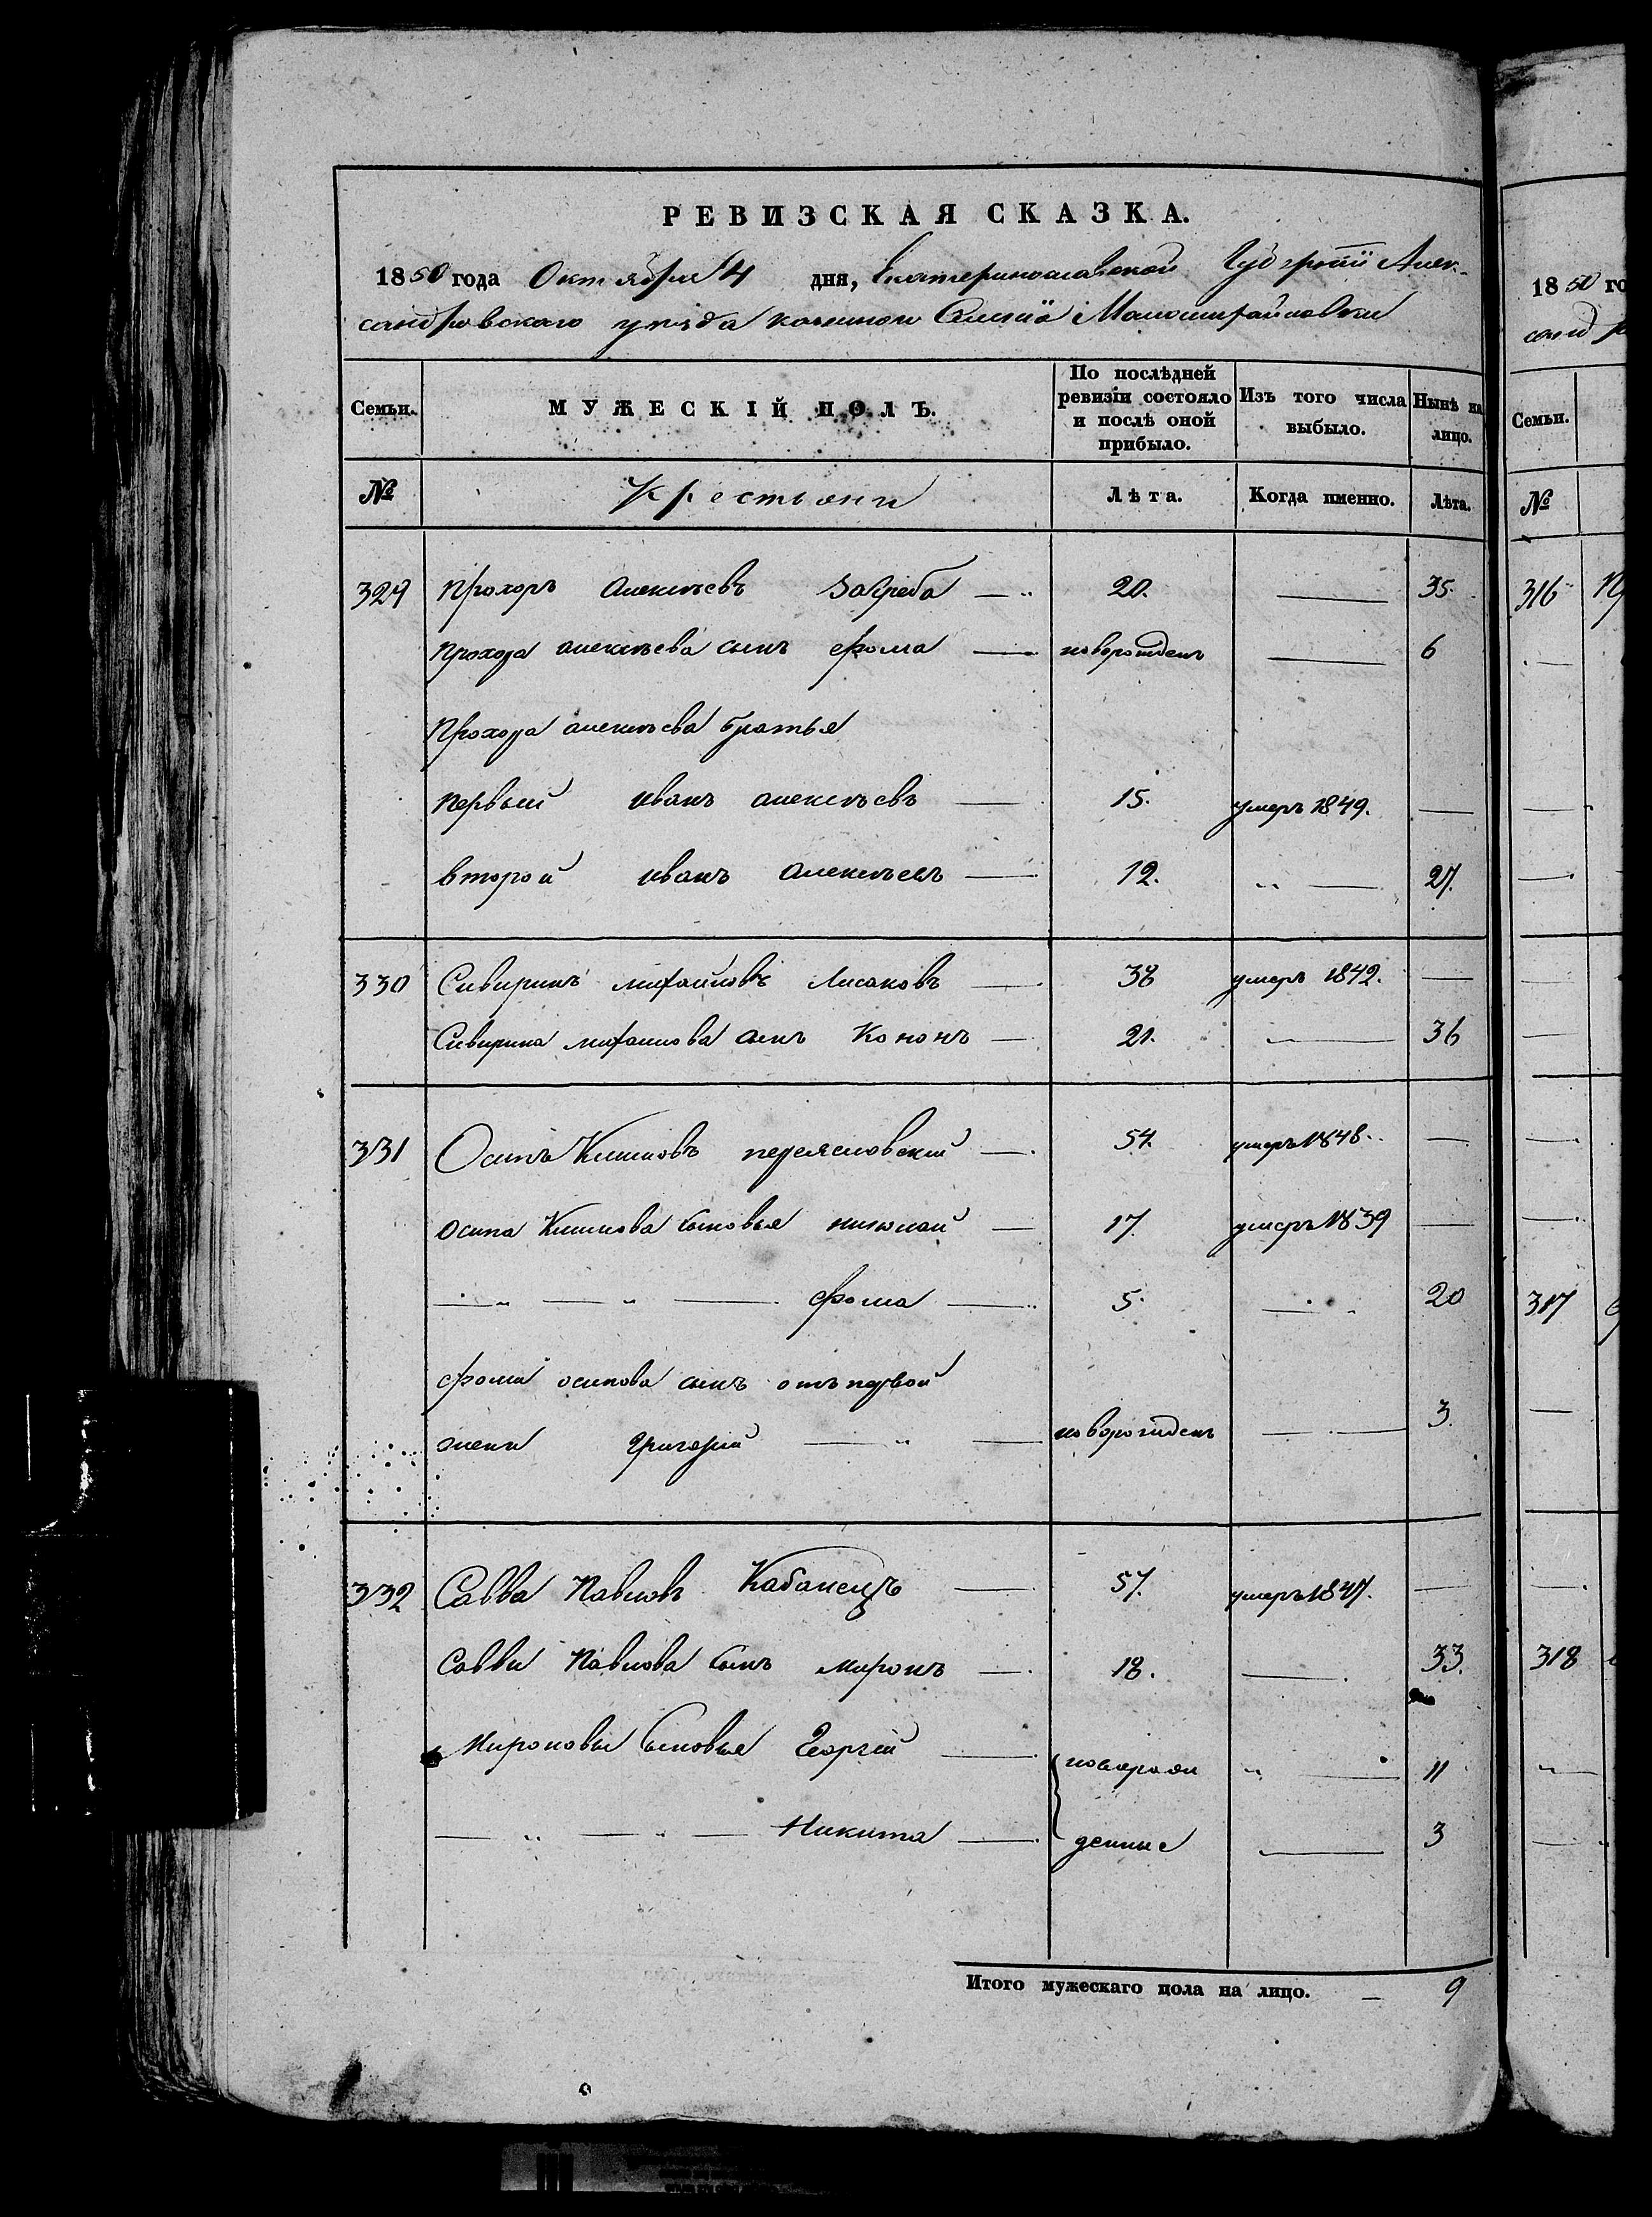 РЕВИЗСКАЯ СКАЗКА.
1850 года Октября 4 дня, Екатеринославской Губерніи Алек-
сандровскаго уезда казенного Селенія Маломихайловки
Семьи. МУЖЕСКІЙ ПОЛЪ. По послѣдней ревизіи состояло и послѣ оной прибыло. Изъ того числа выбыло. Нынѣ на лицо.
№ Крестьяни Лѣта. Когда именно. Лѣта.
329 Прохоръ Алексѣевъ Загреба 20. 35.
Прохора алексѣева сынъ фома новорожденъ 6
Прохора алексѣева братья
первый иванъ алексѣевъ 15. умеръ 1849.
второй иванъ алексѣевъ 12. 27.
330 Сивиринъ михайловъ Лисаковъ 38 умеръ 1842.
Сивирина михаилова сынъ Кононъ 21. 36
331 Осипъ Климовъ переясловский 54. умеръ 1848.
осипа Климова сыновья николай 17. умеръ 1839
фома 5. 20
фомы осипова сынъ отъ первой
жены григорий новорожденъ 3
332 Савва Павловъ Кабанецъ 57. умеръ 1847.
Саввы Павлова сынъ миронъ 18. 33.
Мироновы сыновья Георгій новорож 11
Никита денные 3
Итого мужескаго пола на лицо. 9
1850 го
санд
Семьи.
№
316
317
318